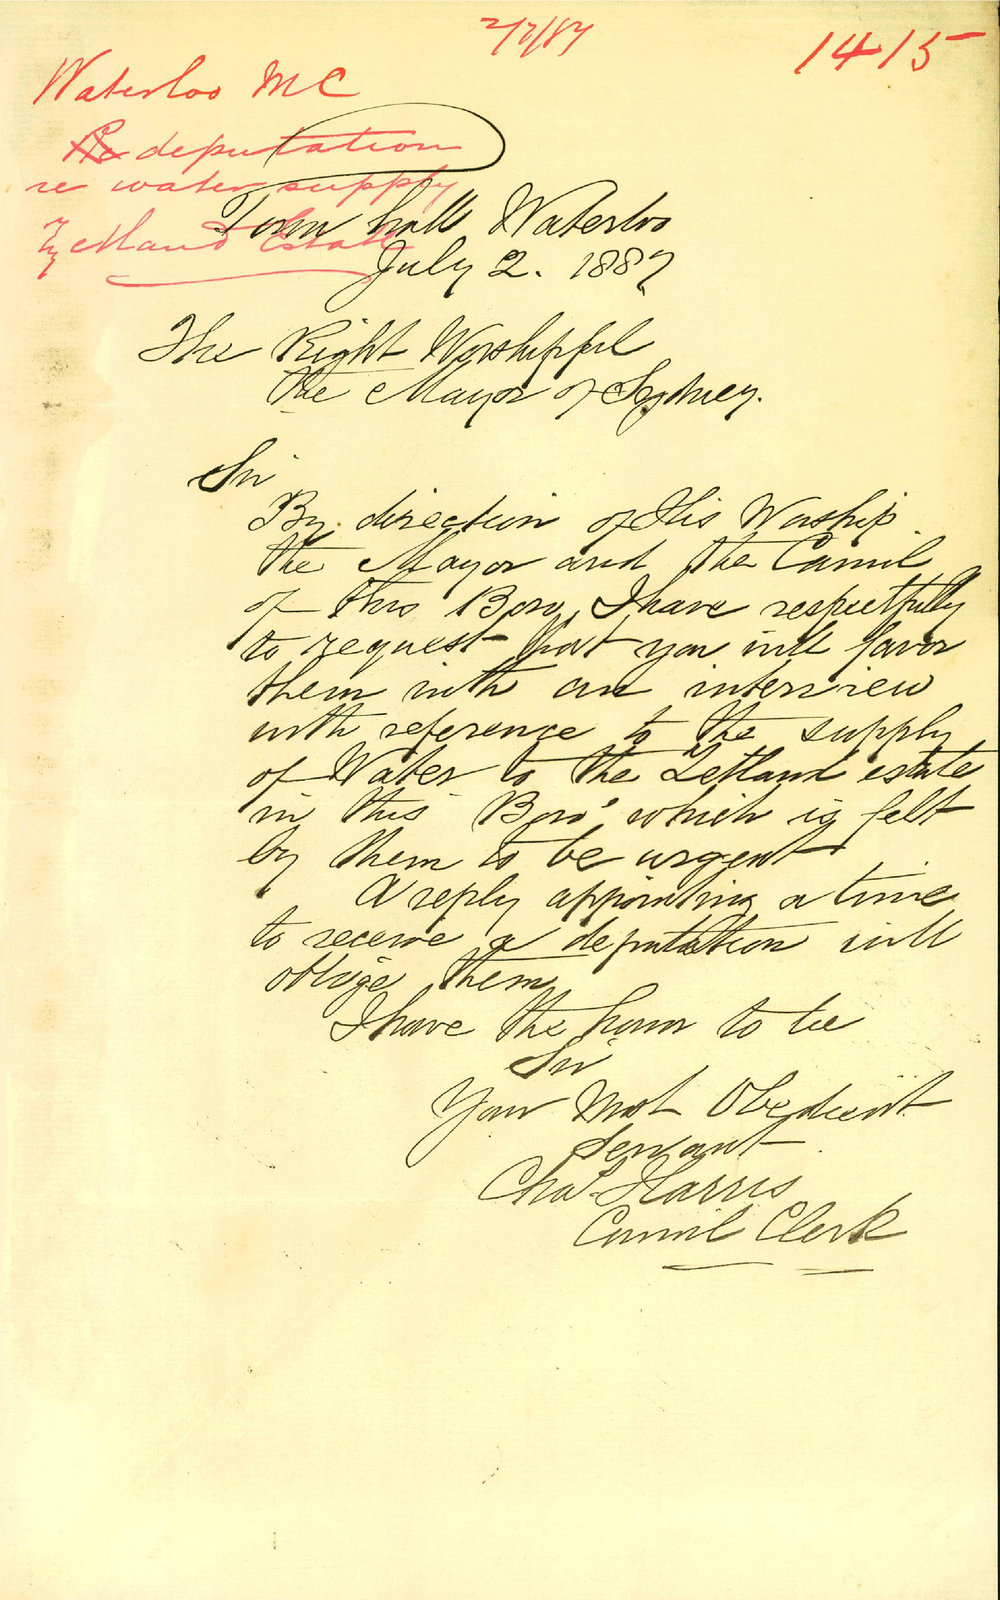 2/7/87
1415
Waterloo MC
deputation
re water supply
Zetland Estate
Town hall Waterloo
July 2. 1887
The Right Worshipful
the Mayor of Sydney.
Sir
By direction of His Worship
the Mayor and the Council
of this Boro, I have respectfully
to request that you will favor
them with an interview
with reference to the supply
of Water to the Zetland estate
in this Boro' which is felt
by them to be urgent
A reply appointing a time
to receive a deputation will
oblige them
I have the honor to be
Sir
Your Most Obedient
Servant
Chas. Harris
Council Clerk